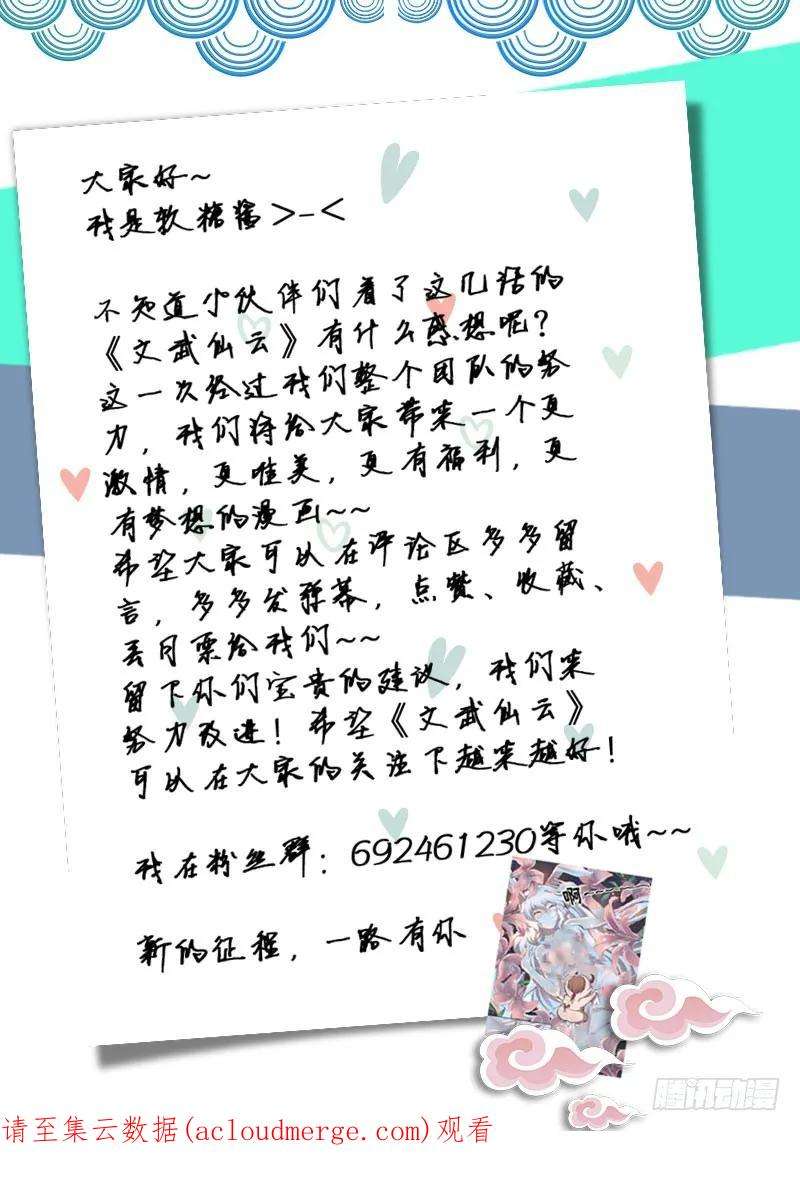 大家好~
我是软糖酱>-<
不知道小伙伴们看了这几话的
《文武仙云》有什么感想呢？
这一次经过我们整个团队的努
力，我们将给大家带来一个更
激情，更唯美，更有福利，更
有梦想的漫画~~
希望大家可以在评论区多多留
言，多多发弹幕，点赞、收藏、
丢月票给我们~~
留下你们宝贵的建议，我们来
努力改进！希望《文武仙云》
可以在大家的关注下越来越好！
我在粉丝群：692461230等你哦~~
啊~~~~~
新的征程，一路有你
腾讯动漫
请至集云数据(acloudmerge.com)观看